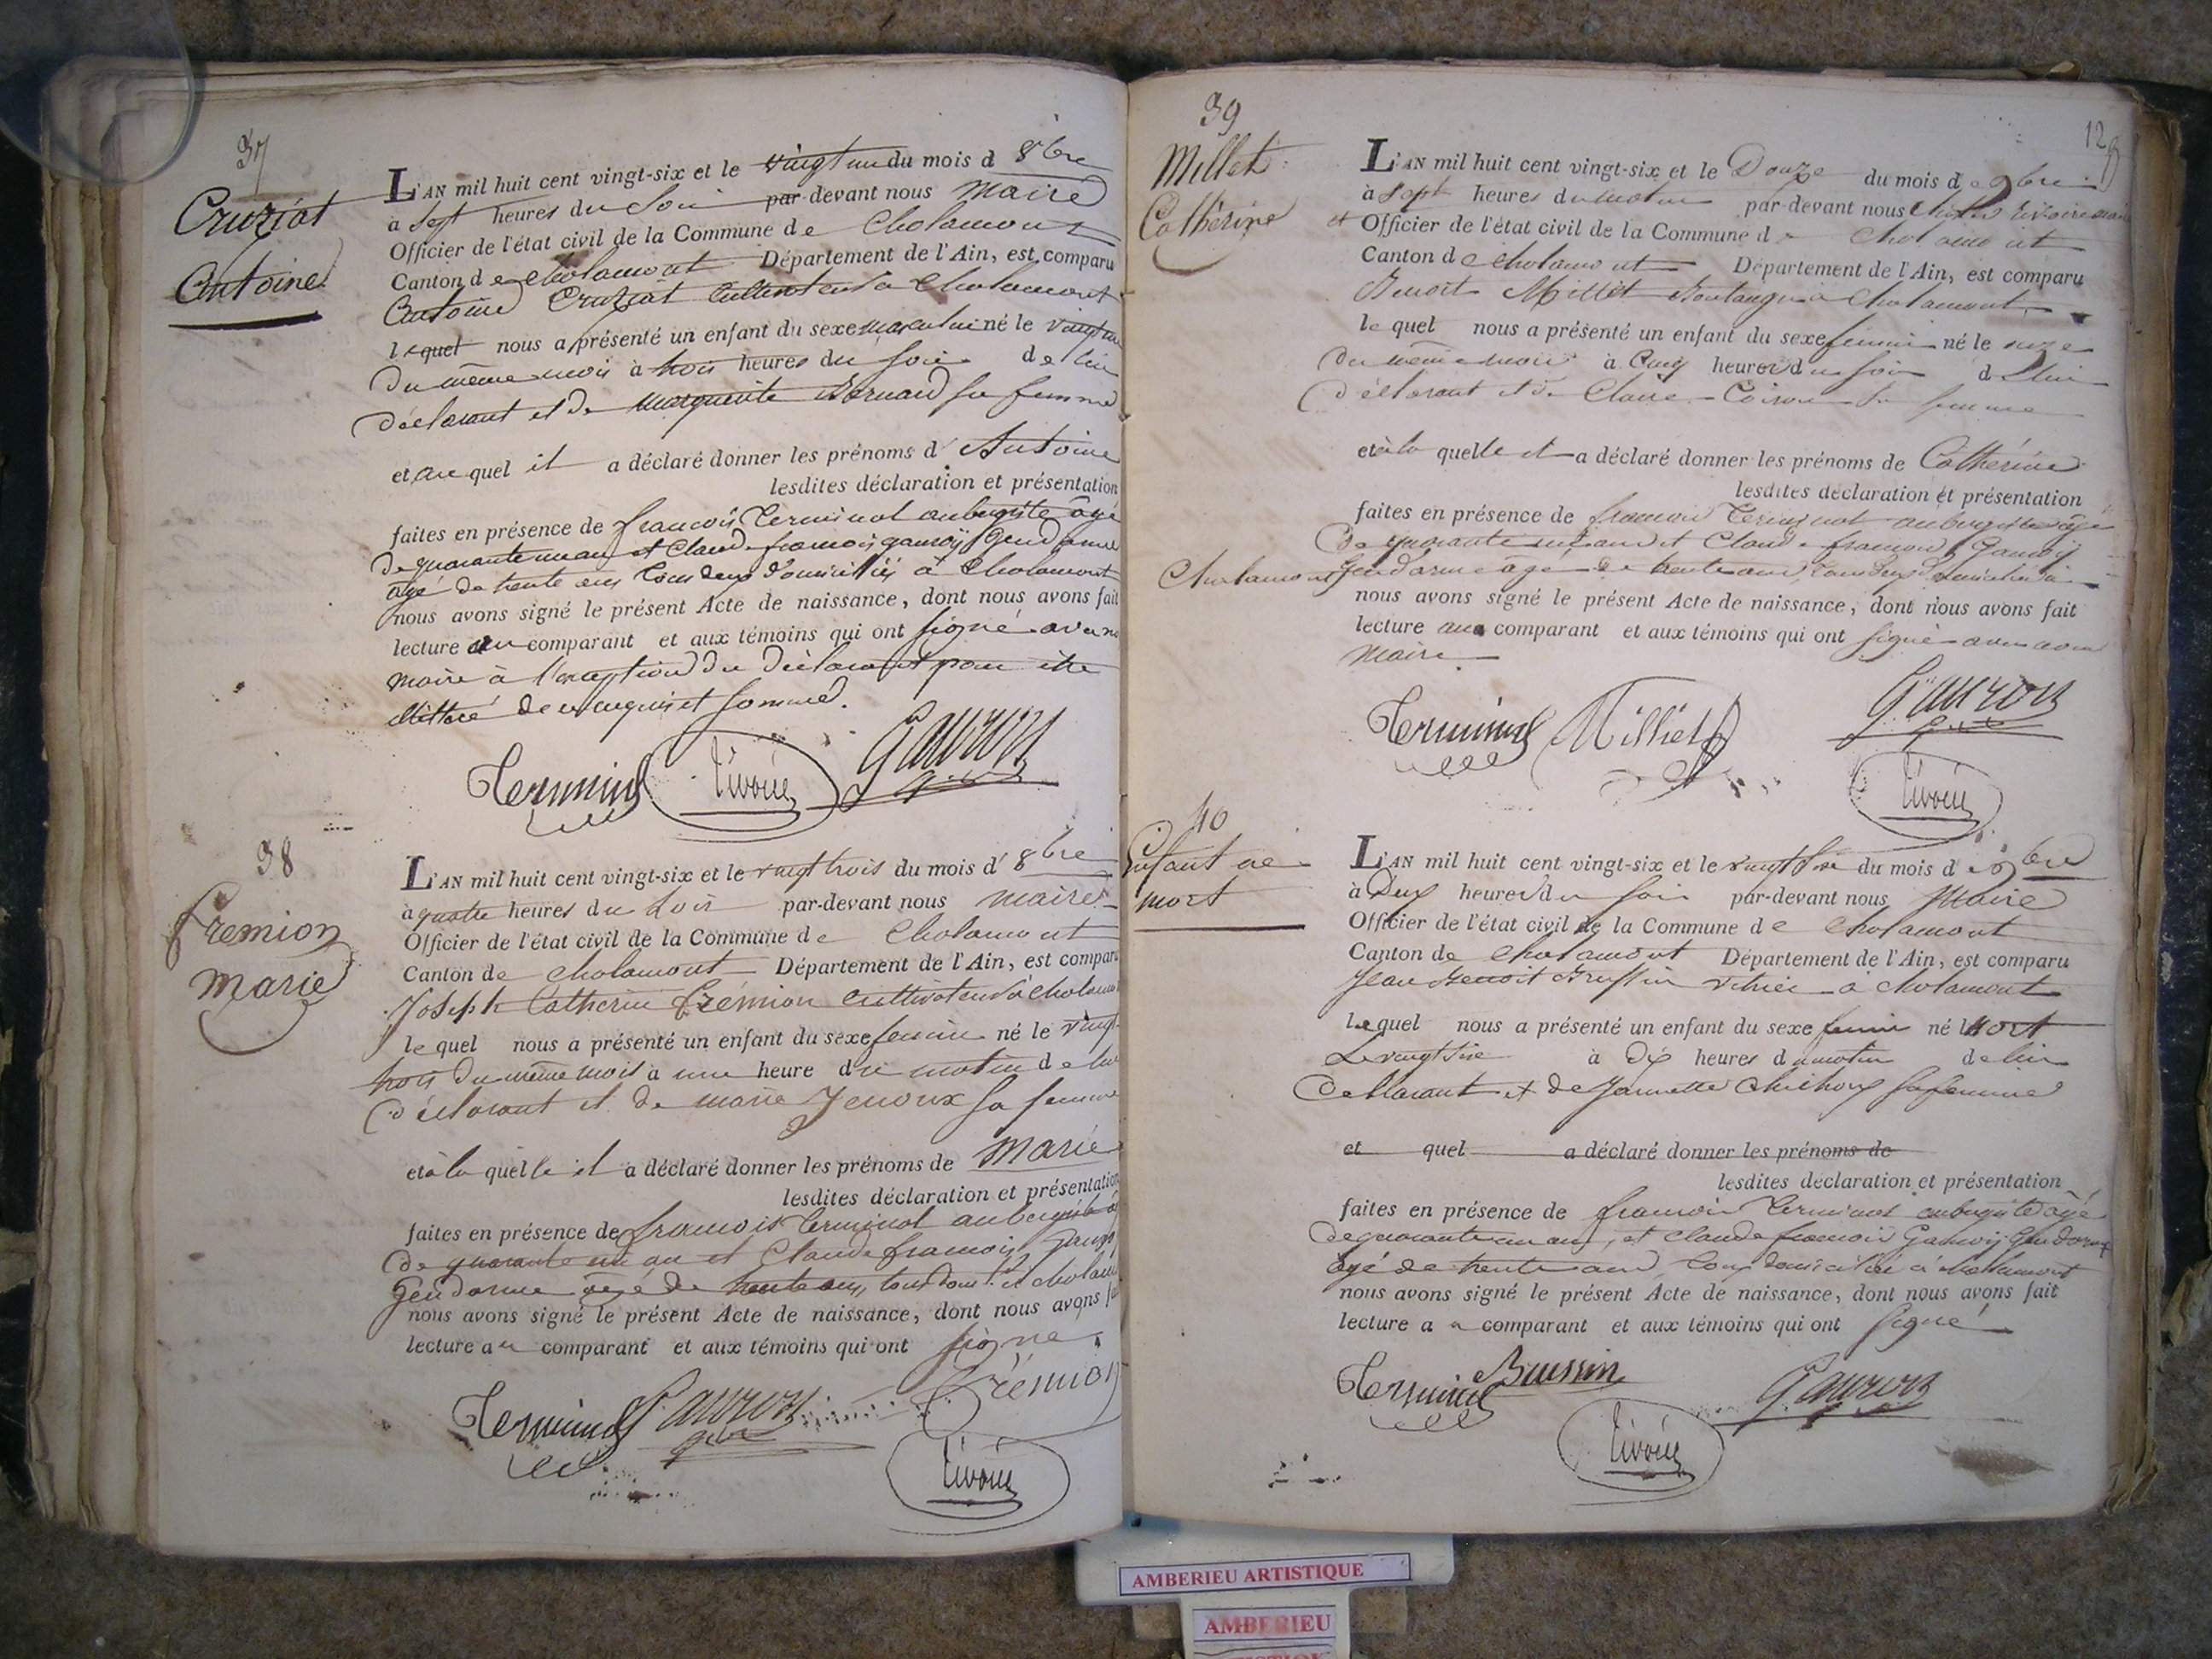 37
Cruziat
Antoine
L'AN mil huit cent vingt-six et le vingt un du mois d 8bre
à Sept heures du Soir par-devant nous Maire
Officier de l'état civil de la Commune de Cholamont
Canton de cholamont Département de l'Ain, est comparu
Antoine Cruziat Cultivateur à Cholamont
lequel nous a présenté un enfant du sexe masculin né le vingt un
du même mois à trois heures du soir de lui
déclarant et de marguerite Bernard sa femme
et au quel il a déclaré donner les prénoms d'Antoine
lesdites déclaration et présentation
faites en présence de françois Terminal aubergiste âgé
de quarante un an et Claude françois gauroy Gendarme
âgé de trente ans tous deux domiciliés à Cholamont
nous avons signé le présent Acte de naissance, dont nous avons fait
lecture au comparant et aux témoins qui ont signé avec
maire à l'exception du déclarant pour être
illittéré de ce requis et sommé.
Terminal
38
Fremion
Marie
L'AN mil huit cent vingt-six et le vingt trois du mois d'8bre
à quatre heures du soir par-devant nous maire
Officier de l'état civil de la Commune de Cholamont
Canton de cholamont Département de l'Ain, est comparu
Joseph Catherin Frémion cultivateur à cholamont
lequel nous a présenté un enfant du sexe feminin né le vingt
trois du même mois à une heure du matin de lui
déclarant et de marie Jenoux sa femme
et à la quelle il a déclaré donner les prénoms de Marie
lesdites déclaration et présentation
faites en présence de françois Terminal aubergiste
de quarante un an et Claude françois
Gendarme âgé de trente ans, tous
nous avons signé le présent Acte de naissance, dont nous avons fait
lecture au comparant et aux témoins qui ont signé.
Terminal Frémion
39
Millet
Catherine
12
L'AN mil huit cent vingt-six et le Douze du mois de 9bre
à sept heures du matin par-devant nous
et Officier de l'état civil de la Commune de Cholamont
Canton de Cholamont Département de l'Ain, est comparu
Benoit Millet Boulanger à Cholamont
lequel nous a présenté un enfant du sexe feminin né le onze
du même mois à Cinq heures du soir de lui
déclarant et de Claire sa femme
et à la quelle il a déclaré donner les prénoms de Catherine
lesdites declaration et présentation
faites en présence de françois Terminal aubergiste âgé
de quarante un an et Claude françois Gauroy
Cholamont Gendarme âgé de trente ans, tous deux domiciliés à
nous avons signé le présent Acte de naissance, dont nous avons fait
lecture au comparant et aux témoins qui ont signé avec nous
Maire.
Terminal Milliet
40
Enfant né
mort
L'AN mil huit cent vingt-six et le vingt six du mois de 9bre
à Deux heures du soir par-devant nous Maire
Officier de l'état civil de la Commune de Cholamont
Canton de Cholamont Département de l'Ain, est comparu
Jean Benoit Brussin vitrier à cholamont
Lequel nous a présenté un enfant du sexe feminin né Mort
Le vingt six à Dix heures du matin de lui
Déclarant et de Jeannette sa femme
et quel a déclaré donner les prénoms de
lesdites declaration et présentation
faites en présence de françois Terminal aubergiste âgé
de quarante un ans, et claude françois Gauroy Gendarme
âgé de trente ans tous domiciliés à cholamont
nous avons signé le présent Acte de naissance, dont nous avons fait
lecture au comparant et aux témoins qui ont signé
Terminal Brussin
AMBERIEU ARTISTIQUE
AMBERIEU